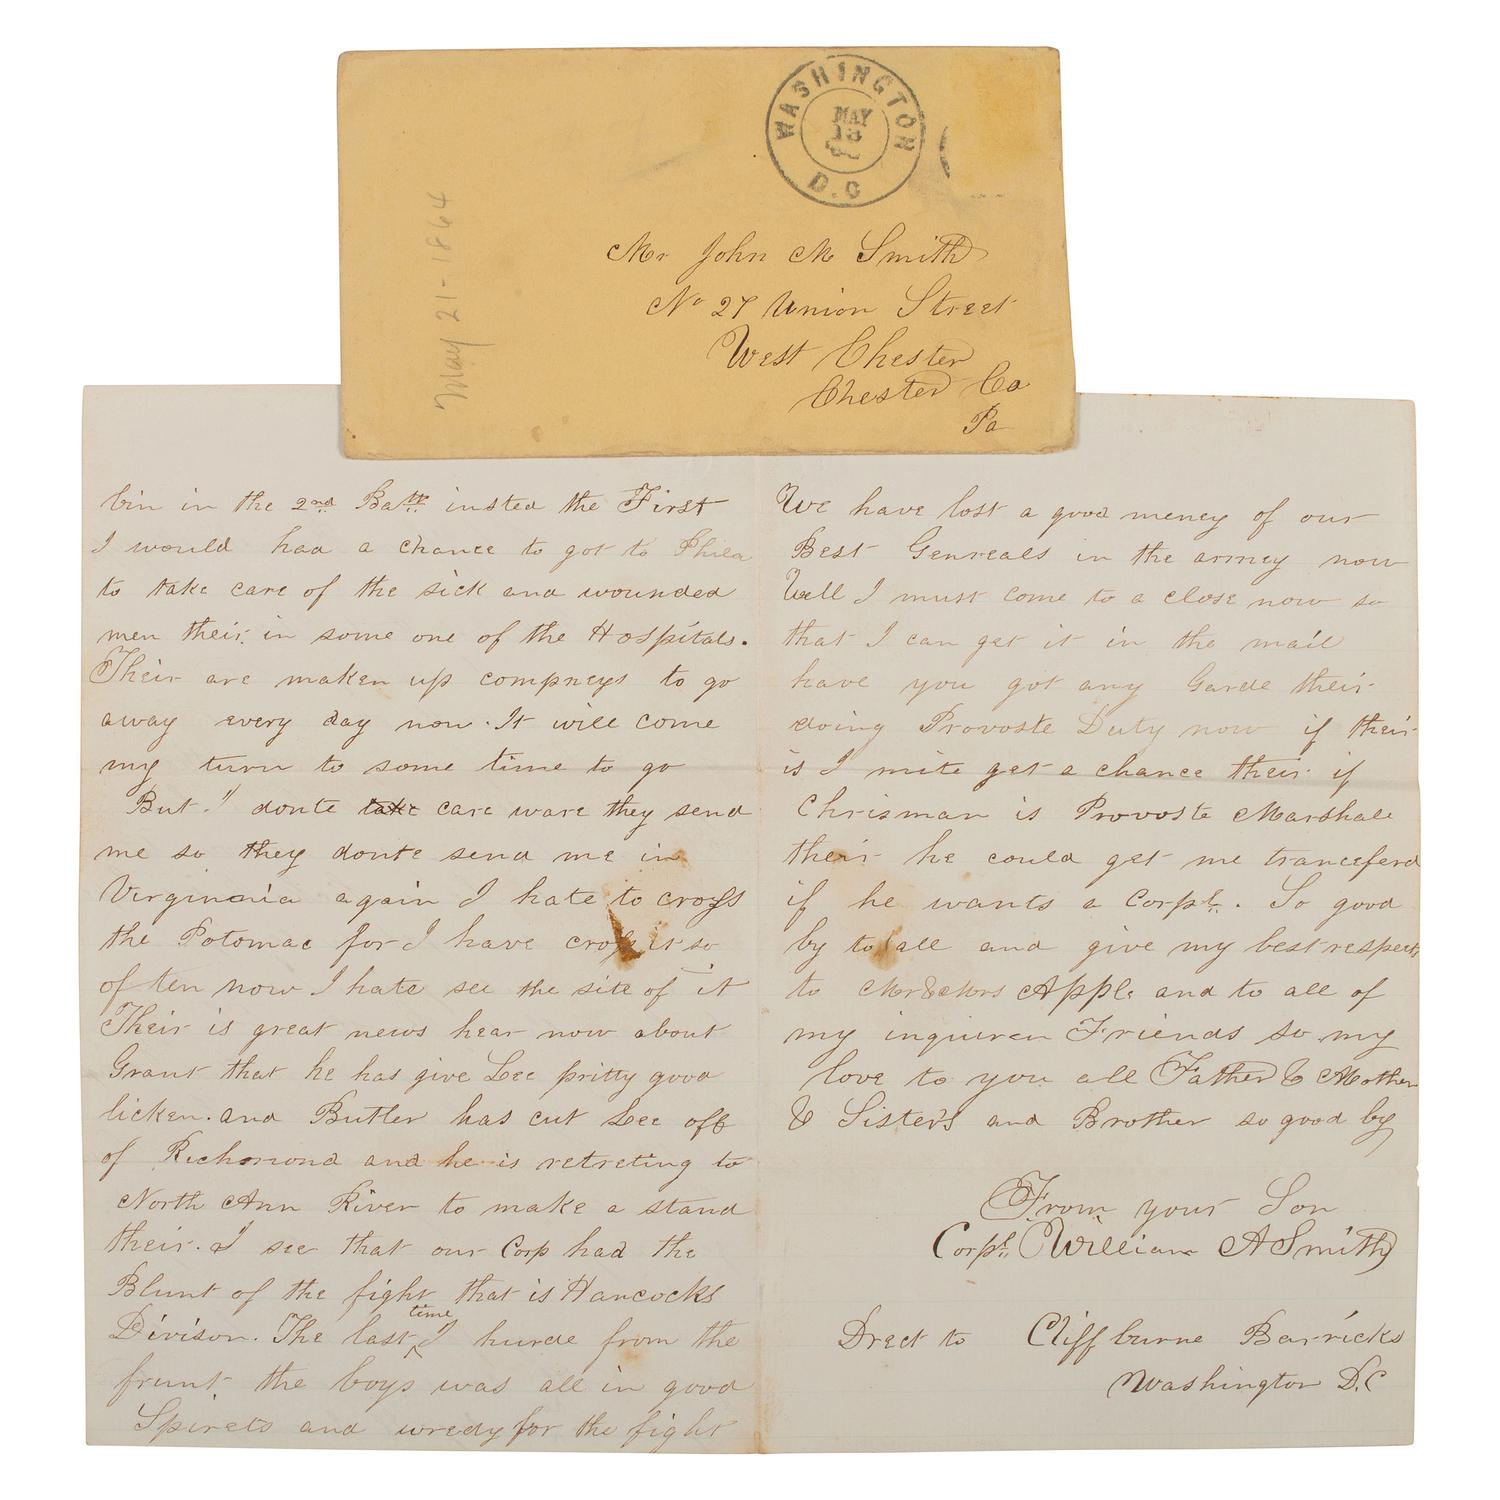 WASHINGTON
MAY
18
D.C
May 21-1864
Mr John M Smith
No 27 Union Street
West Chester
Chester Co
Pa
bin in the 2nd Batt insted the First
I would had a chance to got to Phila
to take care of the sick and wounded
men their in some one of the Hospitals.
Their are maken up compneys to go
away every day now. It will come
my turn to some time to go
But I donte take care ware they send
me so they donte send me in
Virginia again I hate to cross
the Potomac for I have cross it so
of ten now I hate see the site of it
Their is great news hear now about
Grant that he has give Lee pritty good
licken. and Butler has cut Lee off
of Richmond and he is retreting to
North Ann River to make a stand
their. I see that our Corp had the
Blunt of the fight that is Hancocks
Divison. The last time I hurde from the
frunt the boys was all in good
Spirets and wredy for the fight
We have lost a good meney of our
Best Genreals in the armey now
Well I must come to a close now so
that I can get it in the mail
have you got any Garde their
doing Provoste Duty now if their
is I mite get a chance their if
Chrisman is Provoste Marshale
their he could get me tranceferd
if he wants a Corpl. So good
by to all and give my best respects
to Mr & Mrs Apple and to all of
my inquiren Friends so my
love to you all Father & Mother
& Sisters and Brother so good by
From your Son
Corpl William A Smith
Drect to Cliffburne Barricks
Washington D.C